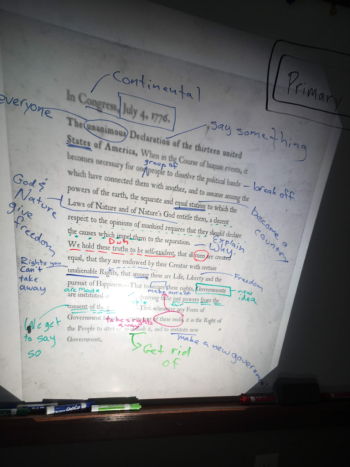 Continental
Primary
In Congress, July 4, 1776.
everyone
The unanimous Declaration of the thirteen united
say something
States of America, When in the Course of human events, it
group of
becomes necessary for one people to dissolve the political bands
break off
which have connected them with another, and to assume among the
powers of the earth, the separate and equal station to which the
become a
country
God &
Nature
give
freedom
Laws of Nature and of Nature's God entitle them, a decent
respect to the opinions of mankind requires that they should declare
the causes which impel them to the separation.
Explain
Duh
We hold these truths to be self-evident, that all men are created
equal, that they are endowed by their Creator with certain
Rights you
can't
take
away
unalienable Rights, that among these are Life, Liberty and the
Freedom
pursuit of Happiness.
these rights, Governments
idea
are made
are instituted
just powers from the
We get
to say
so
Form of
Government
these ends, it is the Right of
take a rights
away
the People to
it, and to institute new
make a new government
Government,
Get rid
of